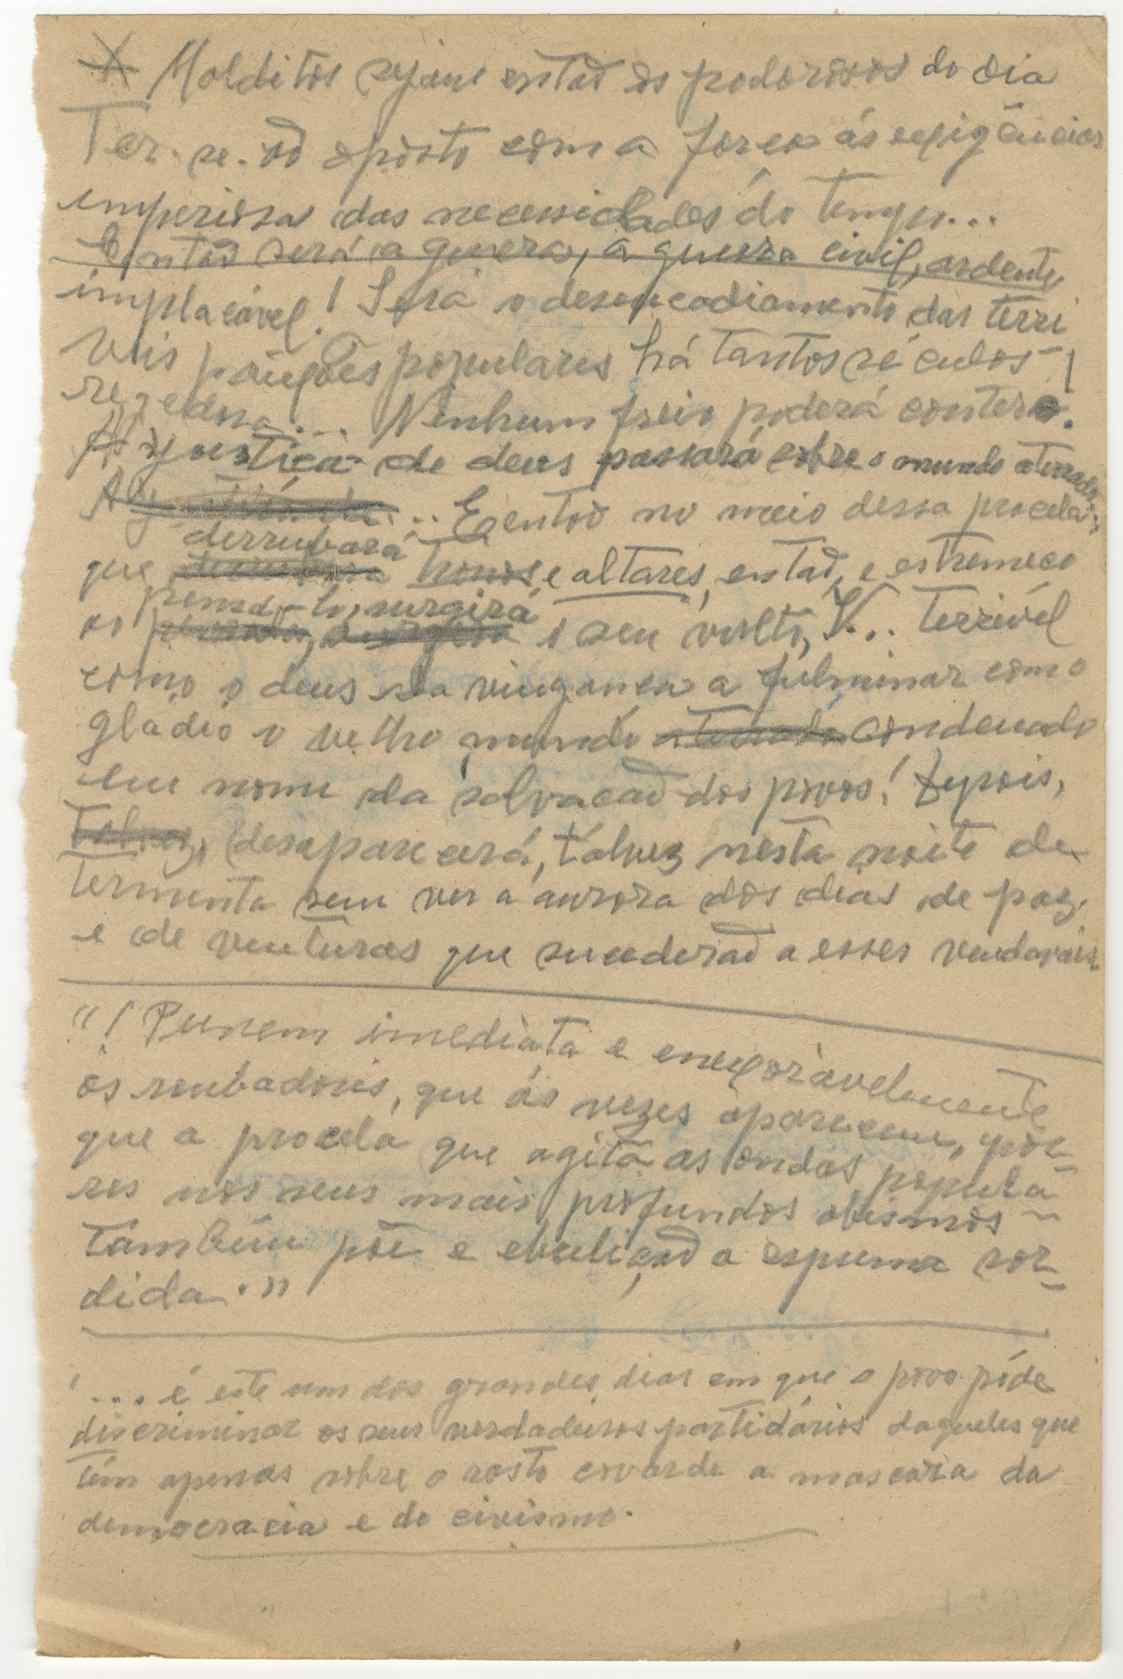 X Malditos sejam então os poderosos do dia
Ter-se-ão oposto com a força ás exigências
imperiosa das necessidades do tempo...
Então será a guerra, a guerra civil, ardente,
implacável! Será o desencadiamento das terri
veis paixões populares há tantos séculos
Nenhum freio poderá conter.
A justiça de deus passará sobre o mundo aterrado
... E então no meio dessa procela
que derrubará tronos e altares, então, e estremeço
ao pensá-lo, surgirá o seu vulto, V... terrivél
como o deus da vingança a fulminar como
gládio o velho mundo condenado
em nome da salvação dos povos! Depois,
desaparecerá, talvez nesta noite de
tormenta sem ver a aurora dos dias de paz
e de venturas que sucederão a esses vendavais
"! Punem imediata e enexoràvelmente
os roubadores, que ás vezes aparecem, por-
que a procela que agita as ondas popula-
res nos seus mais profundos abismos
também põe e ebulição a espuma sor-
dida."
'... é este um dos grandes dias em que o povo póde
discriminar os seus verdadeiros partidários daqueles que
têm apenas sobre o rosto covarde a mascara da
democracia e do civismo.